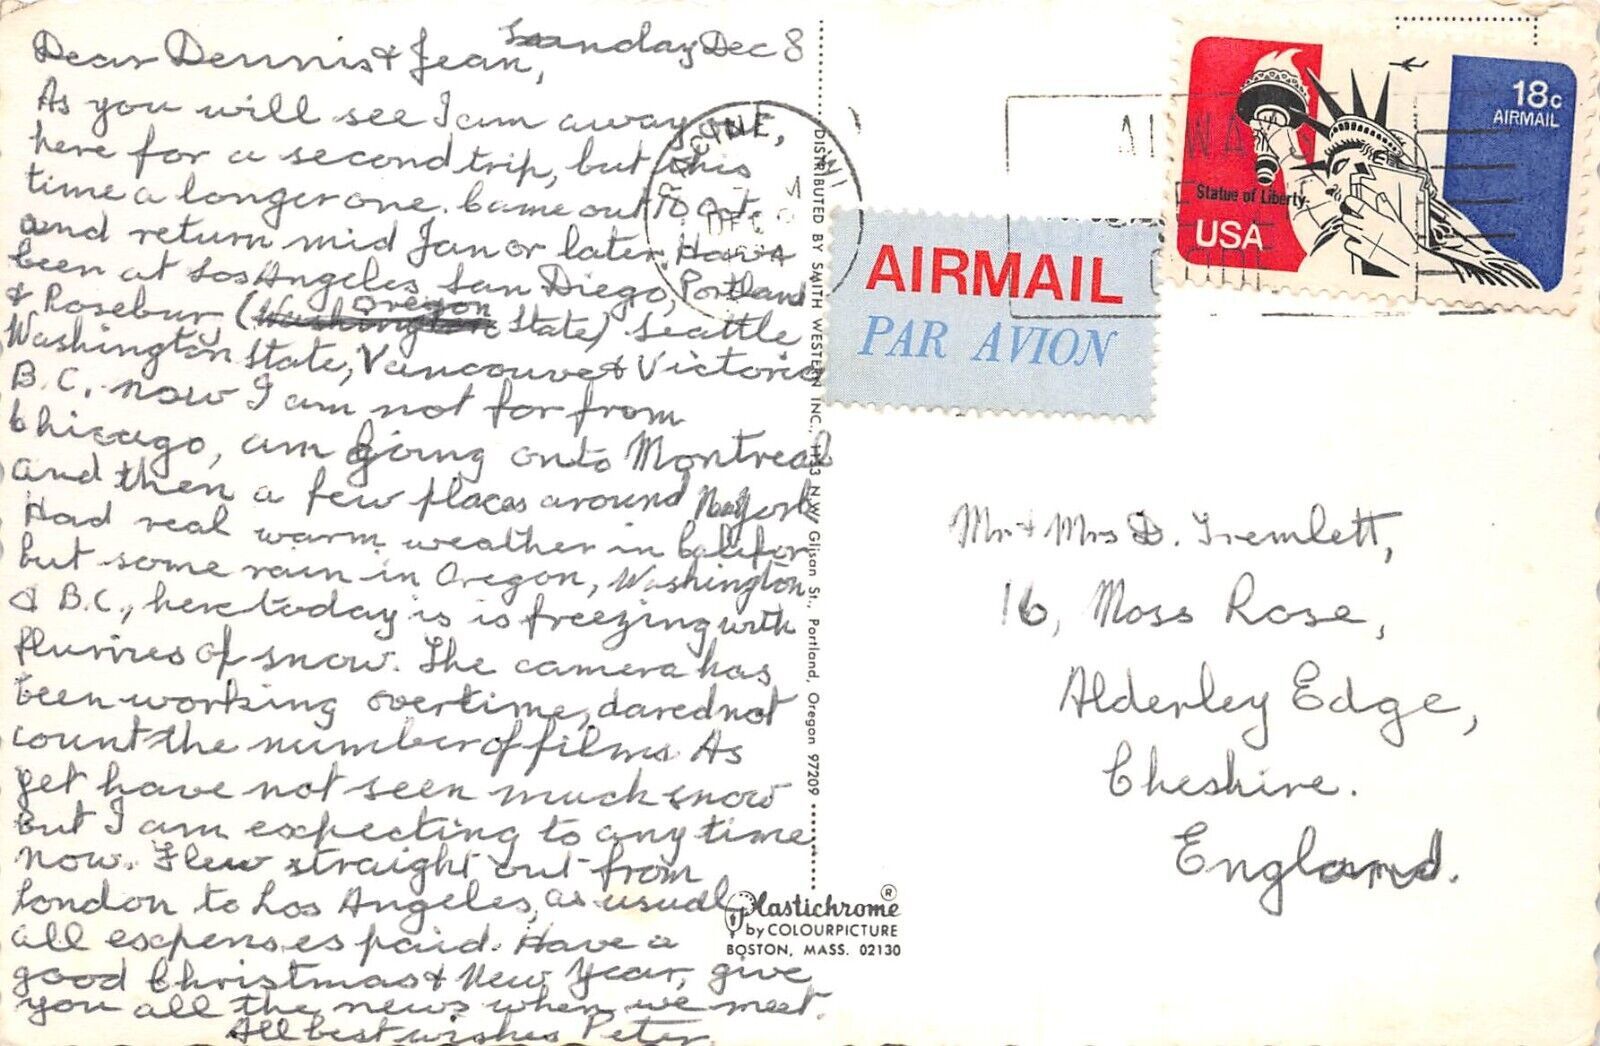 Sunday Dec 8
Dear Dennis & Jean,
As you will see I am away out,
here for a second trip, but this
time a longer one. Came out 10 Oct
and return mid Jan or later. Have
been at Los Angeles San Diego, Portland
& Rosebury (Oregon State) Seattle
Washington State, Vancouver & Victoria
B.C. now I am not far from
Chicago, am going onto Montreal
and then a few places around New York
Had real warm weather in Califor
but some rain in Oregon, Washington
& B.C., here today is is freezing with
flurries of snow. The camera has
been working overtime, dared not
count the number of films. As
yet have not seen much snow
but I am expecting to any time
now. Flew straight out from
London to Los Angeles, as usual
all expenses paid. Have a
good Christmas & New Year, give
you all the news when we meet.
All best wishes Peter
RACINE, WI
DEC
DISTRIBUTED BY SMITH WESTERN INC., 1133 N.W. Glisan St., Portland, Oregon 97209
Plastichrome®
by COLOURPICTURE
BOSTON, MASS. 02130
AIRMAIL
PAR AVION
18c
AIRMAIL
Statue of Liberty
USA
Mr & Mrs D. Tremlett,
16, Moss Rose,
Alderley Edge,
Cheshire.
England.